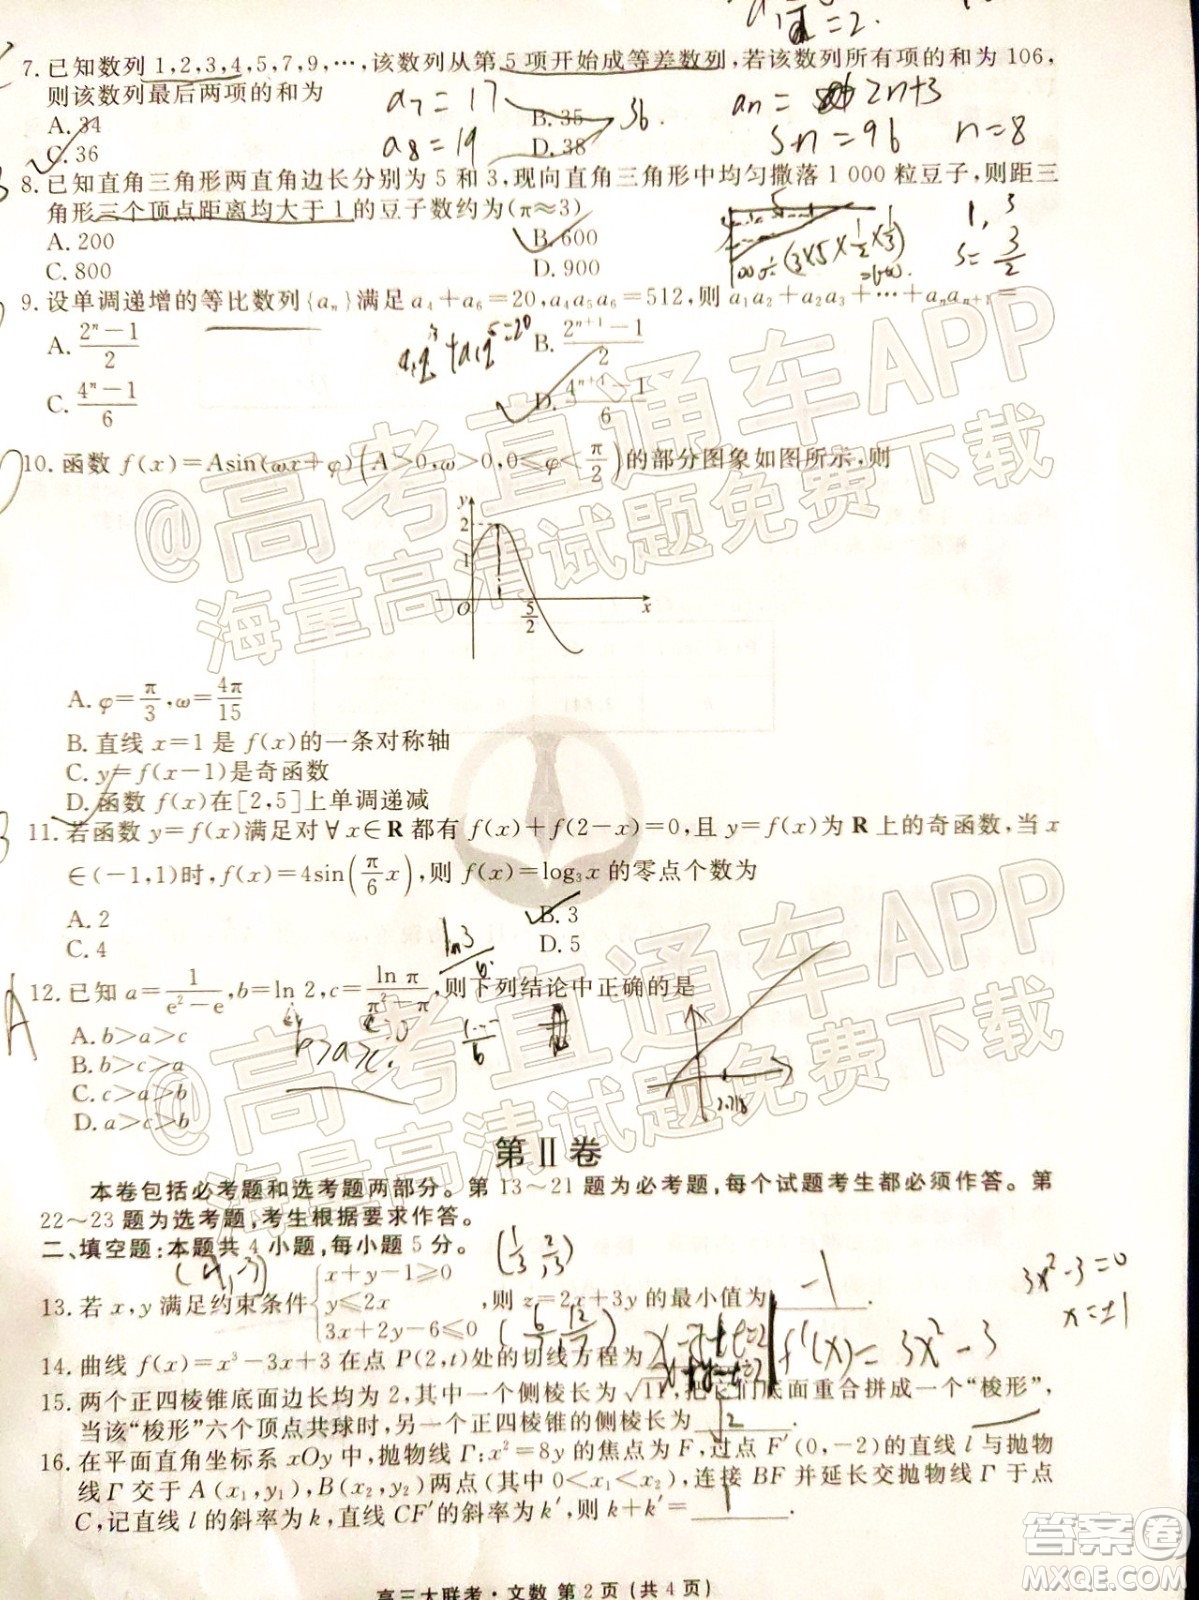 7. 已知数列 1,2,3,4,5,7,9,…,该数列从第 5 项开始成等差数列,若该数列所有项的和为 106,
则该数列最后两项的和为
A. 34 B. 35
C. 36 D. 38
a₇=17
a₈=19
36.
Sn=96 n=8
8. 已知直角三角形两直角边长分别为 5 和 3,现向直角三角形中均匀撒落 1 000 粒豆子,则距三
角形三个顶点距离均大于 1 的豆子数约为(π≈3)
A. 200 B. 600
C. 800 D. 900
9. 设单调递增的等比数列{aₙ}满足 a₄+a₆=20,a₄a₅a₆=512,则 a₁a₂+a₂a₃+…+aₙaₙ₊₁=
A. (2ⁿ−1)/2 B. (2ⁿ⁺¹−1)/2
C. (4ⁿ−1)/6 D. (4ⁿ⁺¹−1)/6
10. 函数 f(x)=Asin(ωx+φ)(A>0,ω>0,0≤φ<π/2)的部分图象如图所示,则
y
2
1
O 5/2 x
A. φ=π/3,ω=4π/15
B. 直线 x=1 是 f(x)的一条对称轴
C. y=f(x−1)是奇函数
D. 函数 f(x)在[2,5]上单调递减
11. 若函数 y=f(x)满足对∀x∈R 都有 f(x)+f(2−x)=0,且 y=f(x)为 R 上的奇函数,当 x
∈(−1,1)时,f(x)=4sin(π/6 x),则 f(x)=log₃x 的零点个数为
A. 2 B. 3
C. 4 D. 5
12. 已知 a=1/(e²−e),b=ln 2,c=ln π/(π²−π),则下列结论中正确的是
A. b>a>c
B. b>c>a
C. c>a>b
D. a>c>b
b>a>c.
第 Ⅱ 卷
本卷包括必考题和选考题两部分。第 13~21 题为必考题,每个试题考生都必须作答。第
22~23 题为选考题,考生根据要求作答。
二、填空题:本题共 4 小题,每小题 5 分。
13. 若 x,y 满足约束条件{x+y−1≥0
y≤2x
3x+2y−6≤0 ,则 z=2x+3y 的最小值为 −1 .
3x²−3=0
x=±1
14. 曲线 f(x)=x³−3x+3 在点 P(2,t)处的切线方程为
f'(x)=3x²−3
15. 两个正四棱锥底面边长均为 2,其中一个正四棱锥的侧棱长为√11,把它们底面重合拼成一个“梭形”,
当该“梭形”六个顶点共球时,另一个正四棱锥的侧棱长为 .
16. 在平面直角坐标系 xOy 中,抛物线 Γ:x²=8y 的焦点为 F,过点 F′(0,−2)的直线 l 与抛物
线 Γ 交于 A(x₁,y₁),B(x₂,y₂)两点(其中 0<x₁<x₂),连接 BF 并延长交抛物线 Γ 于点
C,记直线 l 的斜率为 k,直线 CF′的斜率为 k′,则 k+k′= .
高三大联考·文数 第 2 页(共 4 页)
@高考直通车APP
海量高清试题免费下载
@高考直通车APP
海量高清试题免费下载
答案卷
MXQE.COM